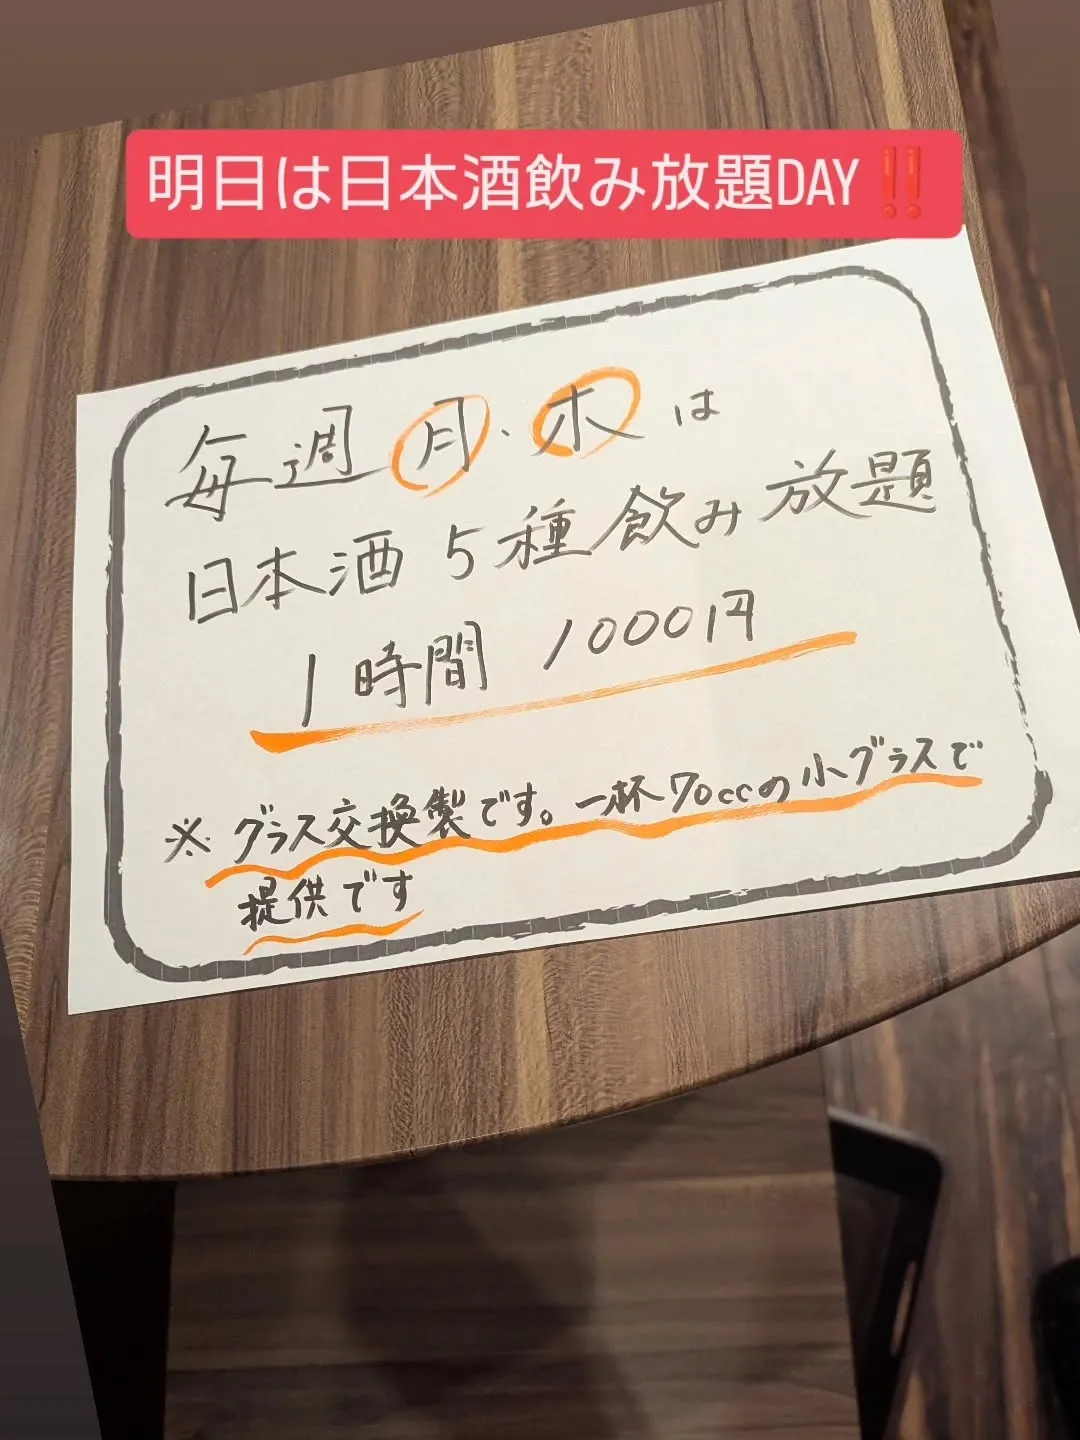 明日は日本酒飲み放題DAY‼️
毎週月、木は
日本酒5種飲み放題
1時間 1000円
※グラス交換製です。一杯70ccの小グラスで
提供です